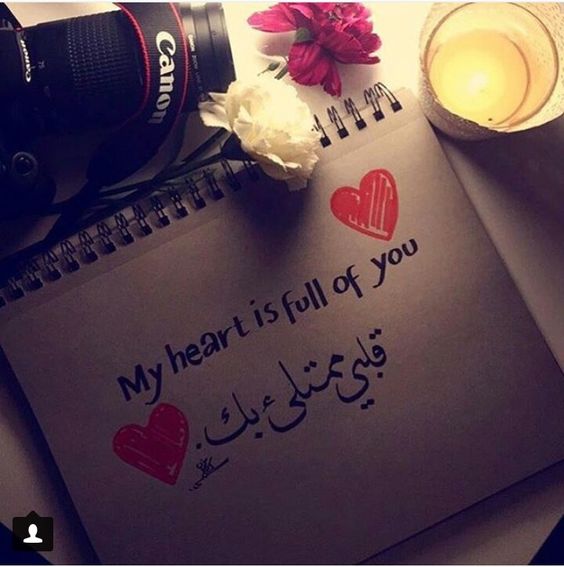 Canon
My heart is full of you
قلبي ممتلىء بك.